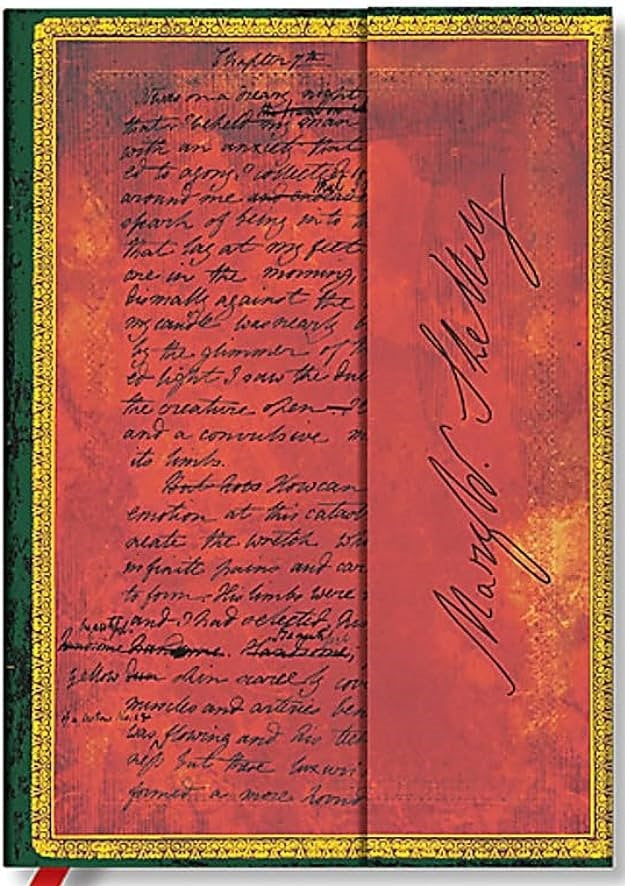 Chapter 7th
It was on a dreary night
that I beheld my man
with an anxiety that
ed to agony, I collected
around me and endeav that
spark of being into
that lay at my feet
one in the morning,
dismally against the
my candle was nearly
by the glimmer of
ed light I saw the dul
the creature open
and a convulsive m
its limbs.
But how How can
emotion at this catast
create the wretch
infinite pains and car
to form. His limbs were
and I had selected his
handsome handsome. Handsome, Beautiful
yellow dun skin scarcely cov
muscles and arteries ben
was flowing and his tee
ness but these luxuri
formed a more horrid
Mary W. Shelley